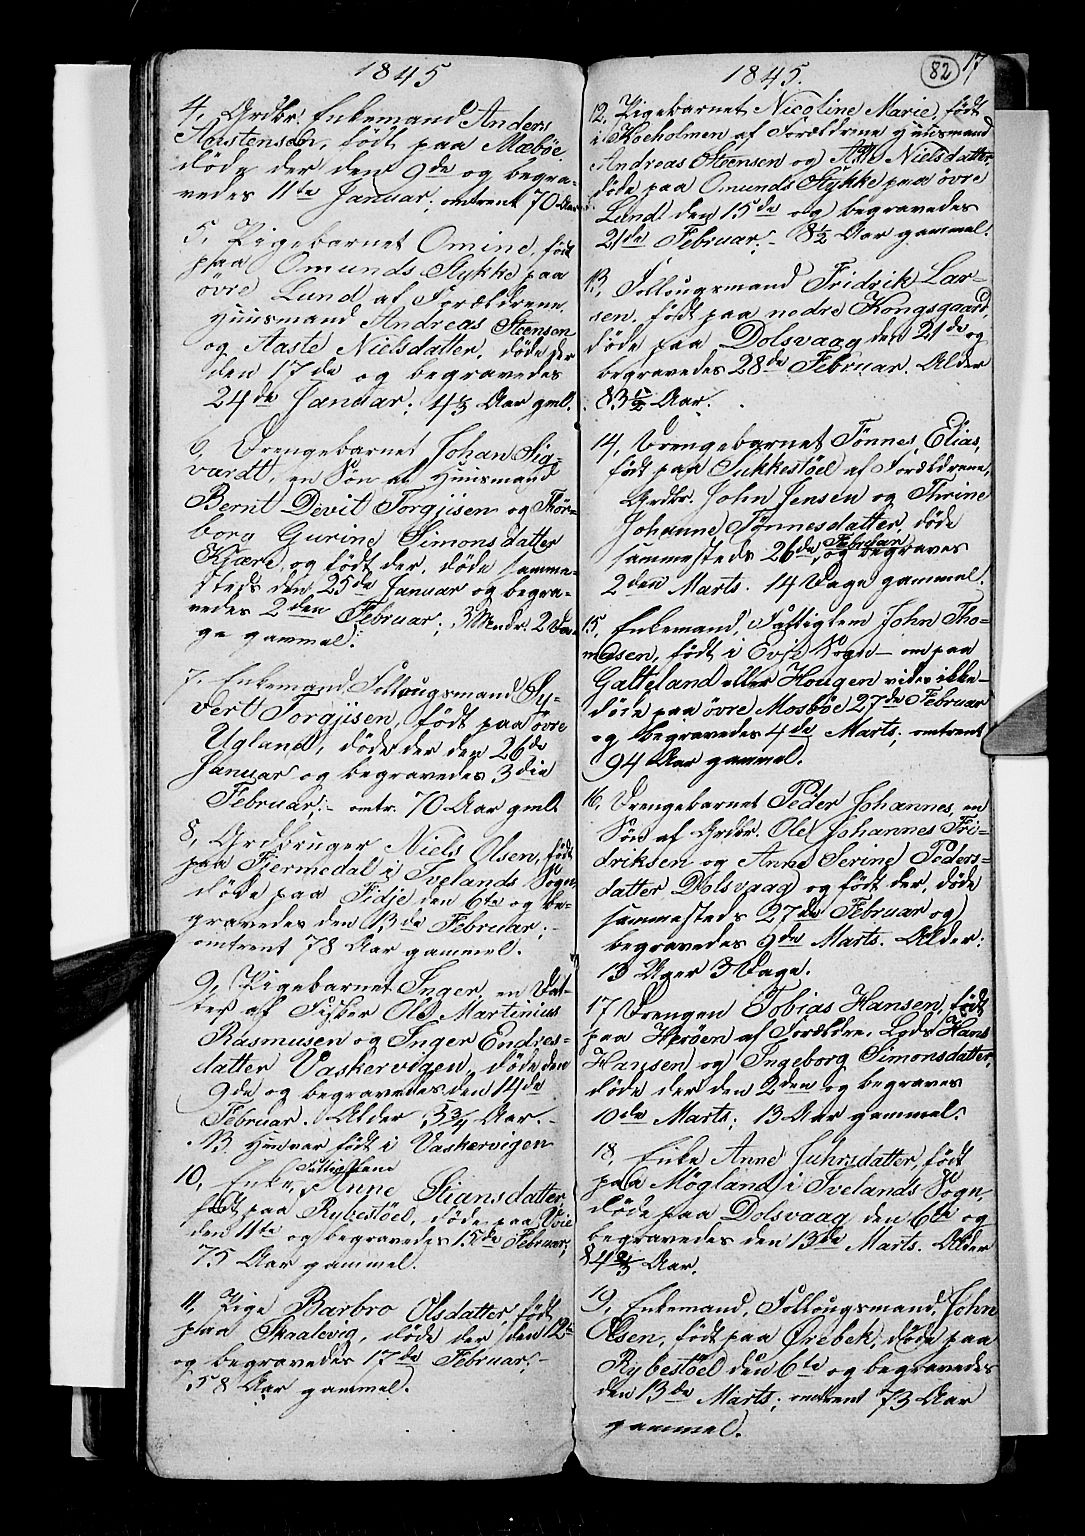 1845
4, Grdbr. Enkemand Anders
Torstensen, født paa Mæbøe
døde der den 9de og begra-
vedes 11te Januar; omtrent 70 Aar
5, Pigebarnet Omine, født
paa Omunds Stykke paa
øvre Lund af Forældrene
Huusmand Andreas Steensen
og Aaste Nielsdatter, døde der
den 17de og begravedes
24de Januar; 4⅓ Aar gml.
6, Drengebarnet Johan Sig-
vardt, en Søn af Huusmand
Bernt Devit Torgjisen og Thor-
borg Gurine Simonsdatter
Kjære, og født der, døde samme-
steds den 25de Januar og begra-
vedes 2den Februar; 3 Mndr. 2 Da-
ge gammel.
7, Enkemand, Follougsmand Sy-
vert Torgjisen, født paa øvre
Ugland, døde der den 26de
Januar og begravedes 3die
Februar; omtr. 70 Aar gml.
8, Grdbruger Niels Olsen, født
paa Fjermedal i Ivelands Sogn,
døde paa Fidje den 6te og be-
gravedes den 13de Februar;
omtrent 78 Aar gammel.
9, Pigebarnet Inger, en Dat-
ter af Fisker Ole Martinius
Rasmusen og Inger Endres-
datter Vaskervigen, døde den
9de og begravedes den 14de
Februar. Alder 3¾ Aar.
NB Hun var født i Vaskervigen
10, Enke, Fattiglem Anne Stiansdatter,
født paa Rybestøel, døde paa
den 11te og begravedes 15de Februar;
75 Aar gammel.
11, Pige Barbro Olsdatter, født
paa Skaalevig, døde der den 12te
og begravedes 17de Februar.
58 Aar gammel.
1845.
82 17
12, Pigebarnet Nicoline Marie, født
i Koeholmen af Forældrene Huusmand
Andreas Steensen og Aaste Nielsdatter
døde paa Omunds Stykke paa øvre
Lund den 15de og begravedes
21de Februar. 8½ Aar gammel.
13, Follougsmand Fridrik Lar-
sen, født paa nedre Kongsgaard,
døde paa Dolsvaag den 21de og
begravedes 28de Februar. Alder
83½ Aar.
14, Drengebarnet Tønnes Elias,
født paa Sukkestøel af Forældrene,
Grdbr. John Jensen og Thrine
Johanne Tønnesdatter, døde
sammesteds 26de Februar og begraves
2den Marts. 14 Dage gammel.
15, Enkemand, Fattiglem John Tho-
masen, født i Evje Sogn – om paa
Galteland eller Hougen vides ikke –
døde paa øvre Mosbøe 27de Februar
og begravedes 4de Marts; omtrent
94 Aar gammel.
16, Drengebarnet Peder Johannes, en
Søn af Grdbr. Ole Johannes Fri-
driksen og Anne Serine Peders-
datter Dolsvaag og født der, døde
sammesteds 27de Februar og
begravedes 9de Marts. Alder:
13 Uger 3 Dage.
17 Drengen Tobias Hansen, født
paa Herøen af Forældre. Lods Hans
Hansen og Ingeborg Simonsdatter,
døde der den 2den og begraves
10de Marts; 13 Aar gammel.
18, Enke Anne Juhrsdatter, født
paa Møgland i Ivelands Sogn,
døde paa Dolsvaag den 6te og
begravedes den 13de Marts. Alder
84⅔ Aar.
19, Enkemand, Follougsmand, John
Olsen, født paa Ørebek, døde paa
Rybestøel den 6te og begravedes
den 13de Marts; omtrent 73 Aar
gammel.